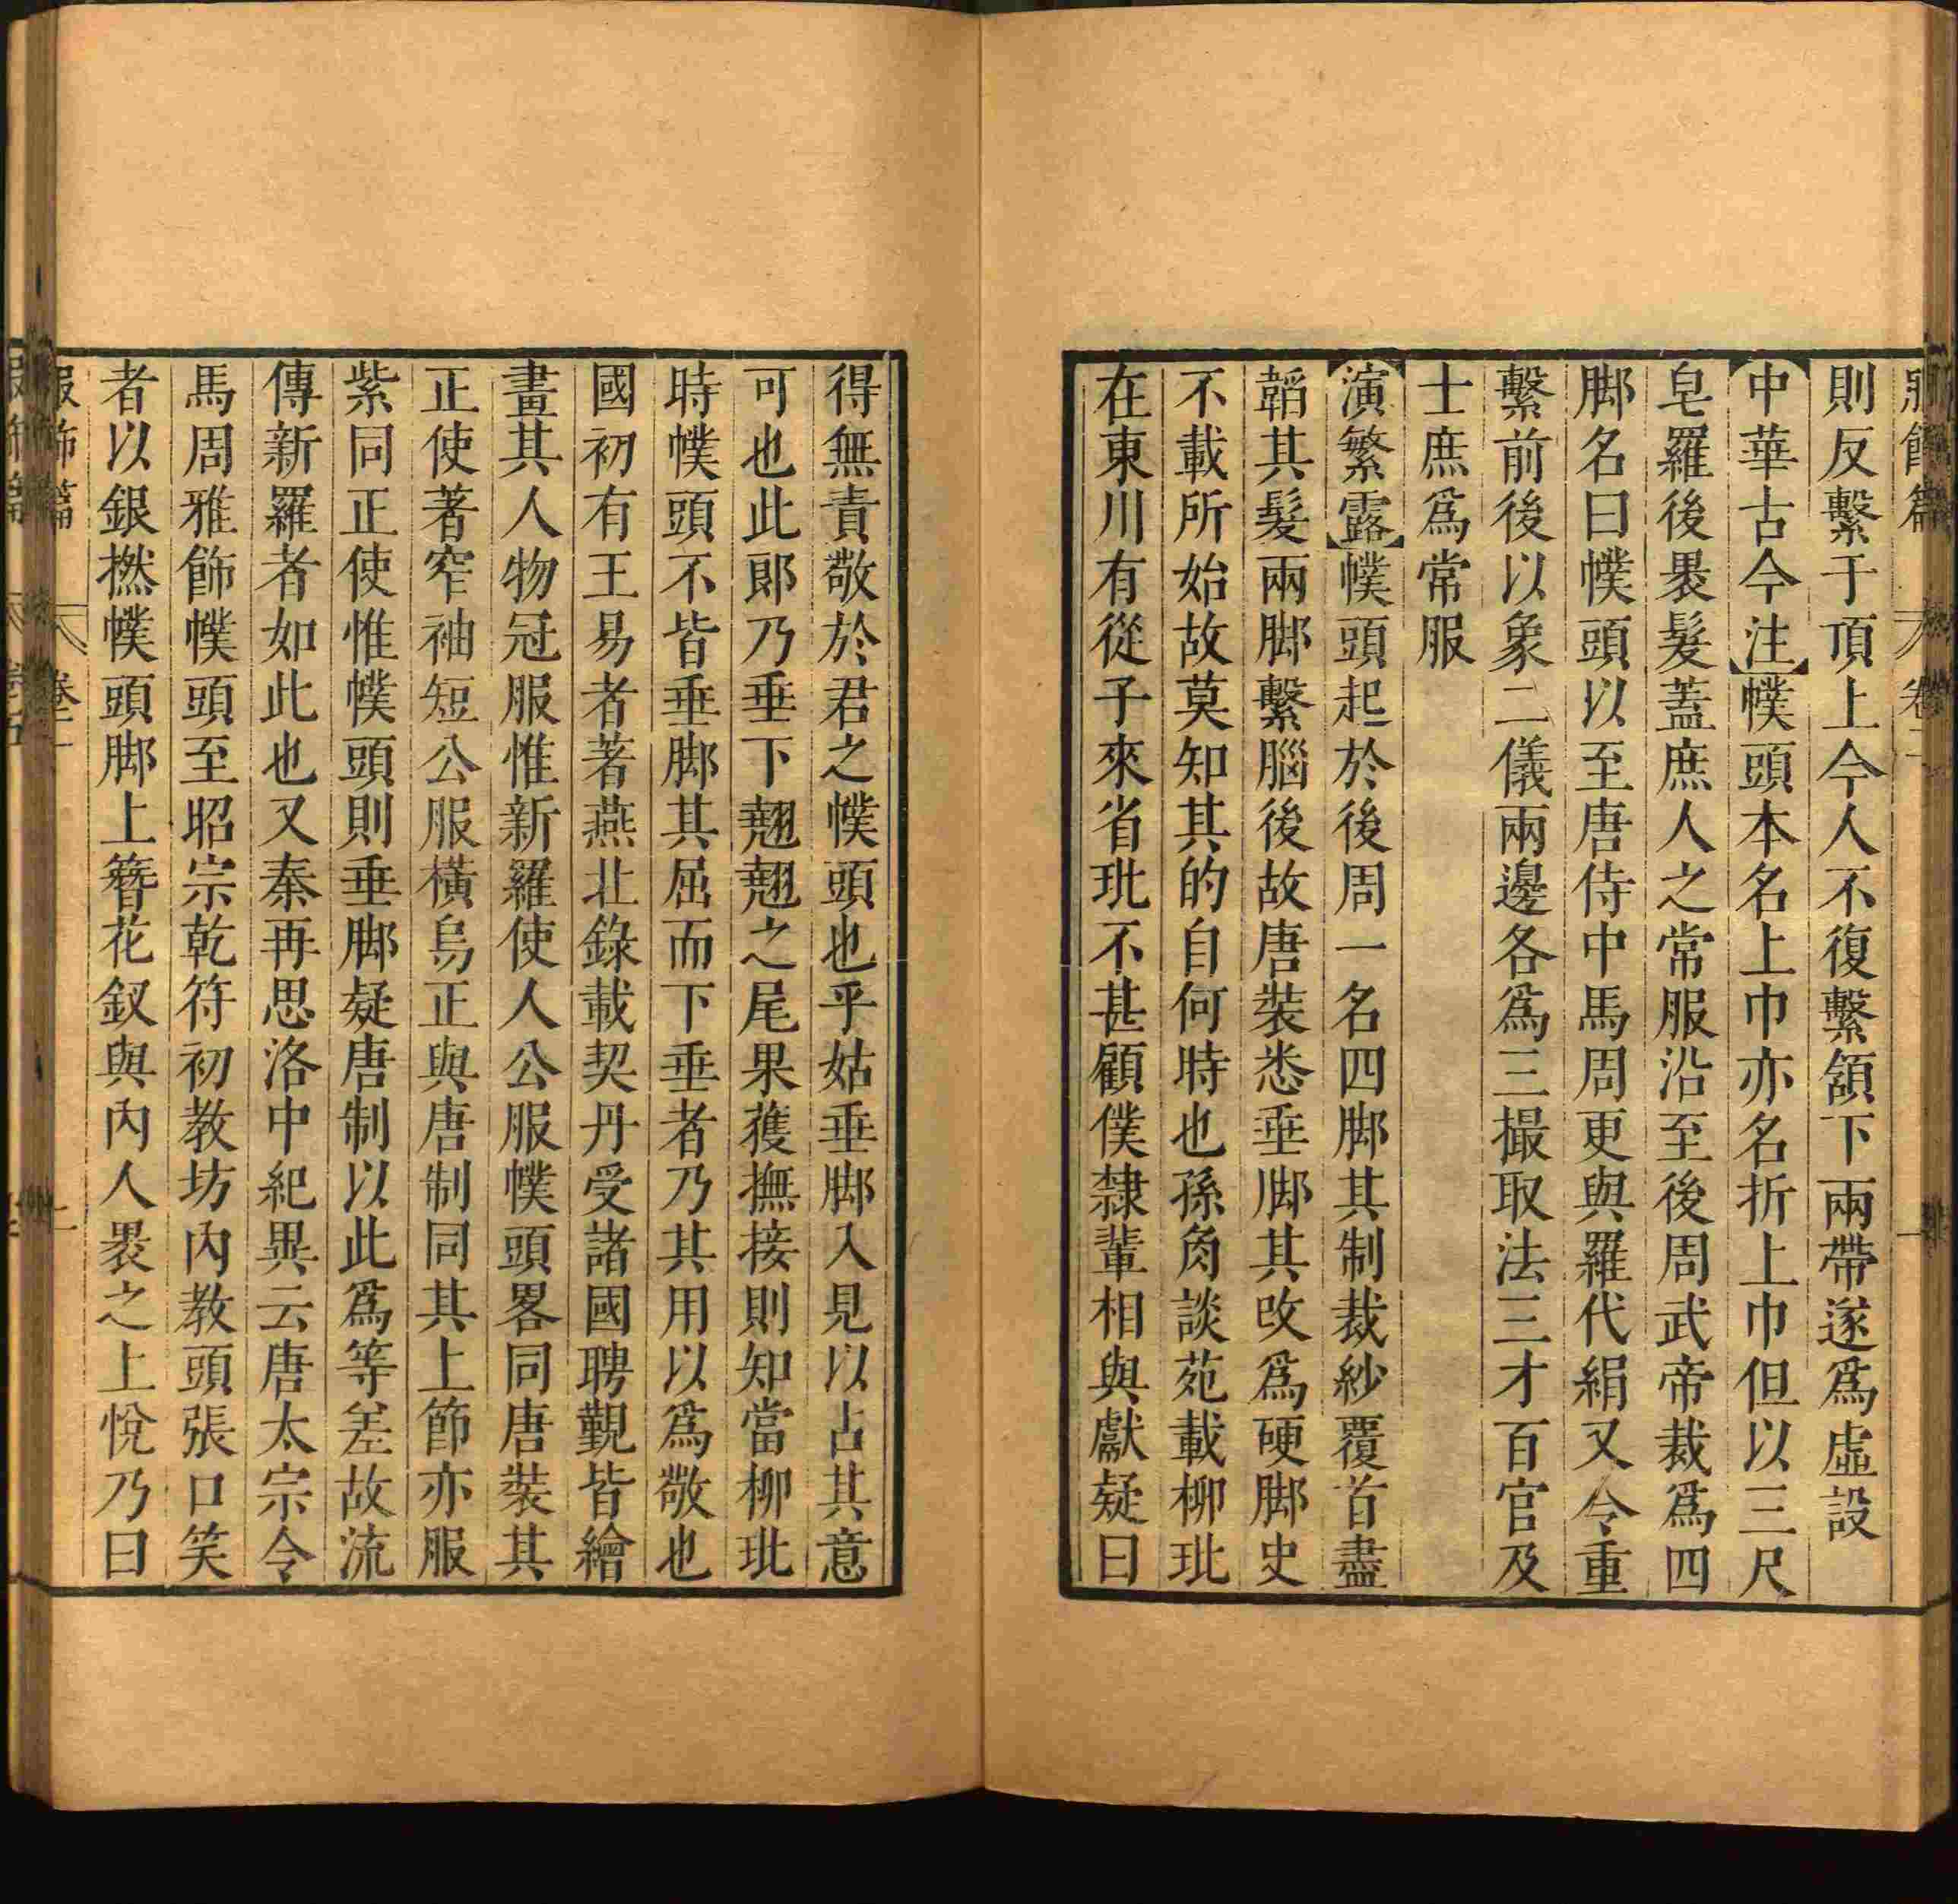 則反繫于頂上今人不復繫頷下兩帶遂爲虛設
中華古今注幞頭本名上巾亦名折上巾但以三尺
皂羅後褁髮蓋庶人之常服沿至後周武帝裁爲四
脚名曰幞頭以至唐侍中馬周更與羅代絹又令重
繫前後以象二儀兩邊各爲三撮取法三才百官及
士庶爲常服
演繁露幞頭起於後周一名四脚其制裁紗覆首盡
韜其髮兩脚繫腦後故唐裝悉垂脚其改爲硬脚史
不載所始故莫知其的自何時也孫角談苑載柳玭
在東川有從子來省玭不甚顧僕隸輩相與獻疑曰
得無責敬於君之幞頭也乎姑垂脚入見以占其意
可也此郎乃垂下翹翹之尾果獲撫接則知當柳玭
時幞頭不皆垂脚其屈而下垂者乃其用以爲敬也
國初有王易者著燕北錄載契丹受諸國聘覲皆繪
畫其人物冠服惟新羅使人公服幞頭畧同唐裝其
正使著窄袖短公服橫烏正與唐制同其上節亦服
紫同正使惟幞頭則垂脚疑唐制以此爲等差故流
傳新羅者如此也又秦再思洛中紀異云唐太宗令
馬周雅飾幞頭至昭宗乾符初教坊內教頭張口笑
者以銀撚幞頭脚上簪花釵與內人褁之上悅乃曰